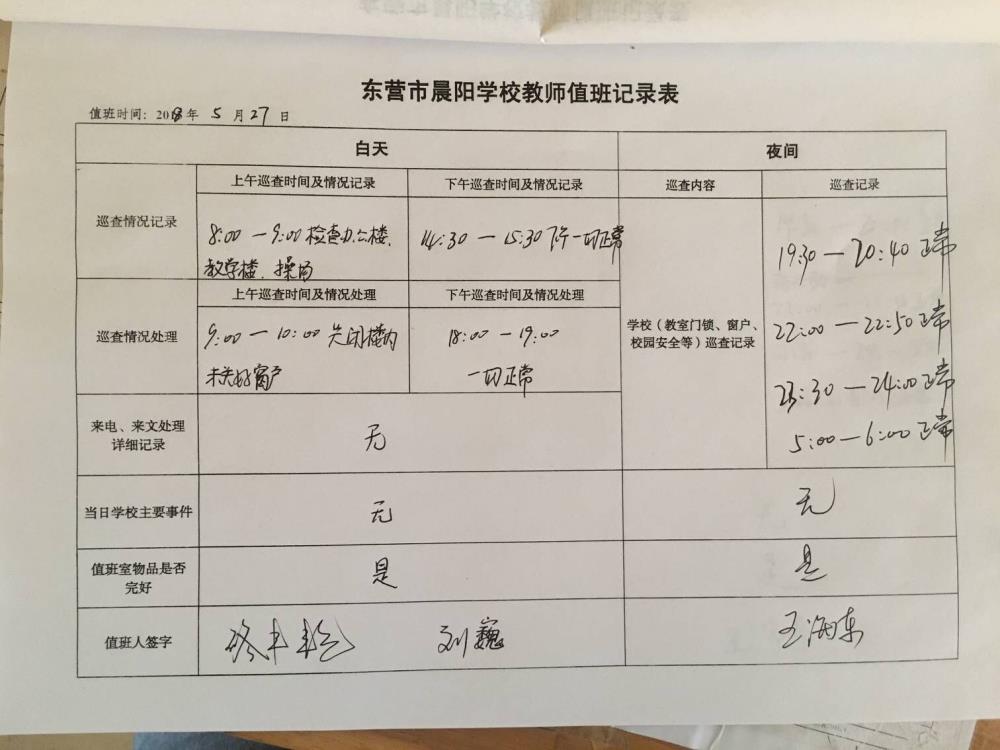 东营市晨阳学校教师值班记录表
值班时间：2018年 5 月 27 日
白天 夜间
巡查情况记录 上午巡查时间及情况记录 下午巡查时间及情况记录 巡查内容 巡查记录
8:00 — 9:00 检查办公楼、
教学楼、操场
14:30 — 15:30 下午一切正常
19:30 — 20:40 正常
巡查情况处理 上午巡查时间及情况处理 下午巡查时间及情况处理
9:00 — 10:00 关闭楼内
未关好窗户
18:00 — 19:00
一切正常
学校（教室门锁、窗户、
校园安全等）巡查记录
22:00 — 22:50 正常
23:30 — 24:00 正常
5:00 — 6:00 正常
来电、来文处理
详细记录
无
当日学校主要事件 无 无
值班室物品是否
完好
是 是
值班人签字 刘巍 王海东